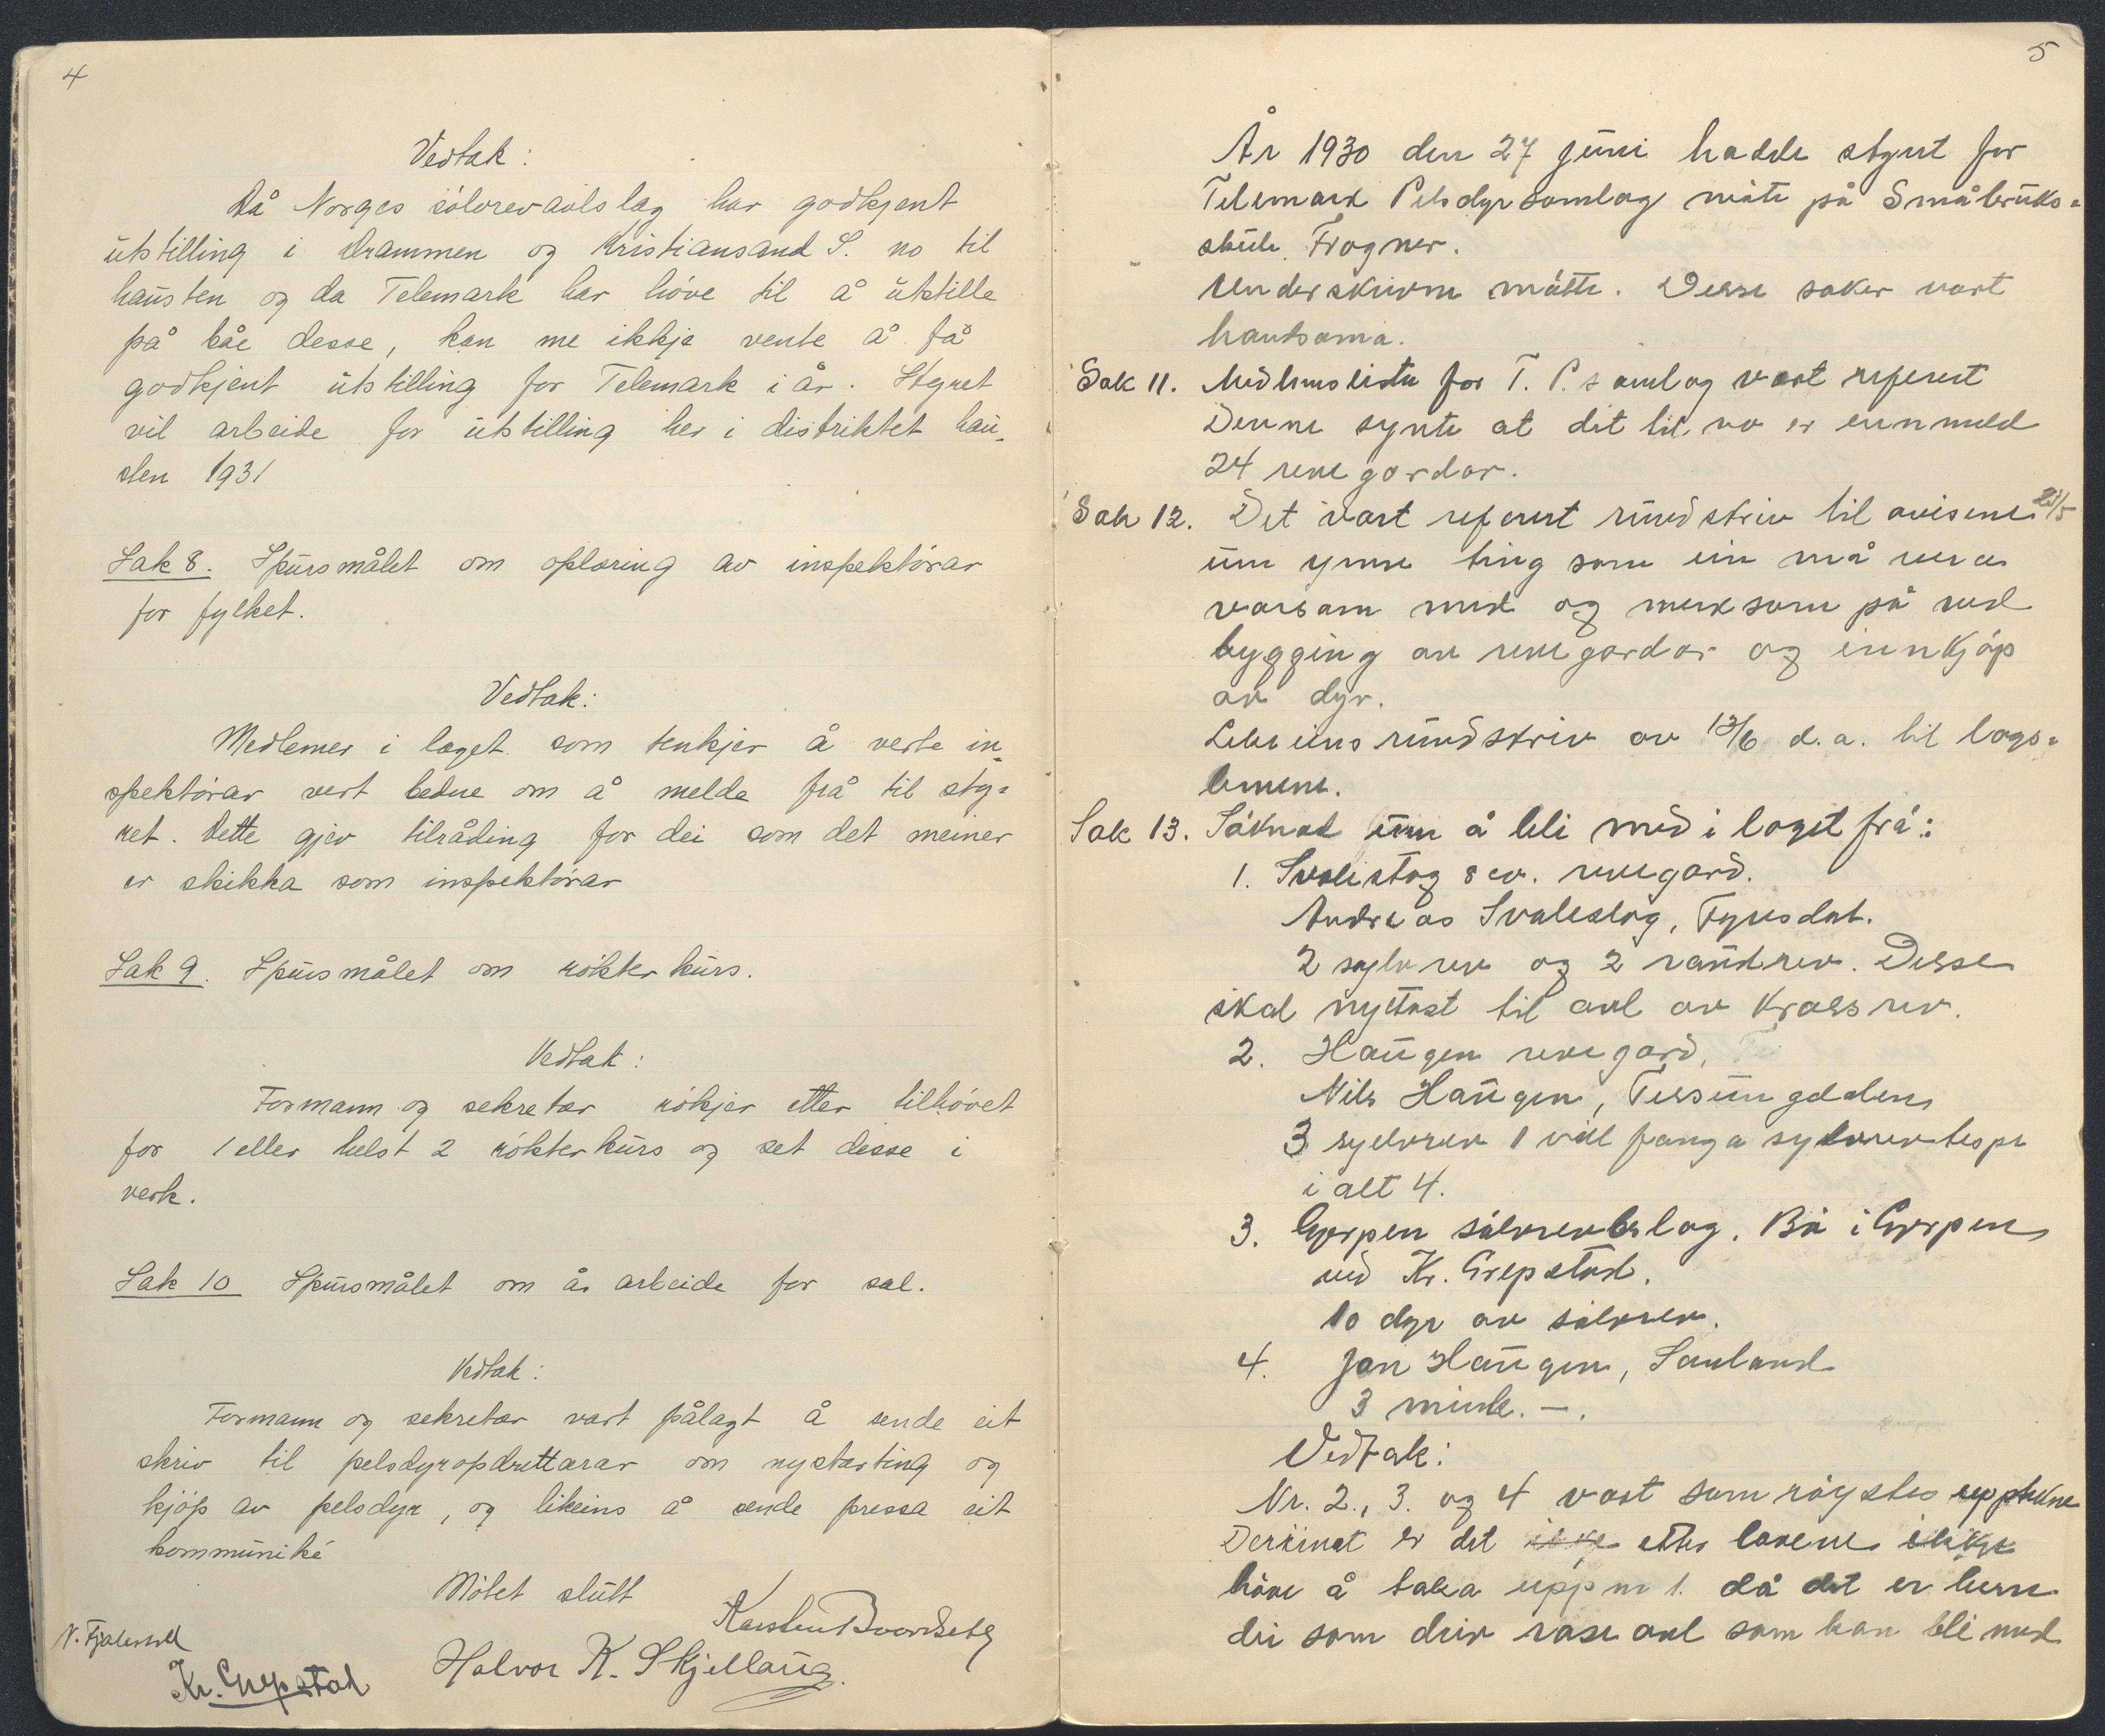 4
Vedtak:
Då Norges sölvrevavlslag har godkjent
utstilling i Drammen og Kristiansand S. no til
hausten og da Telemark har höve til å utstille
på båe desse, kan me ikkje vente å få
godkjent utstilling for Telemark i år. Styret
vil arbeide for utstilling her i distriktet hau-
sten 1931
Sak 8. Spursmålet om oplæring av inspektörar
for fylket.
Vedtak:
Medlemer i laget som tenkjer å verte in-
spektörar vert bedne om å melde frå til sty-
ret. Dette gjev tilråding for dei som det meiner
er skikka som inspektörar
Sak 9. Spursmålet om rökterkurs.
Vedtak:
Formann og sekretær rökjer etter tilhövet
for 1 eller helst 2 rökterkurs og set disse i
verk.
Sak 10 Spursmålet om å arbeide for sal.
Vedtak:
Formann og sekretær vart pålagt å sende eit
skriv til pelsdyropdrettarar om nystarting og
kjöp av pelsdyr, og likeins å sende pressa eit
kommuniké
Mötet slutt
N. Fjalestad
Kr. Grepstad
Halvor K. Skjellaug.
5
År 1930 den 27 juni hadde styret for
Telemark Pelsdyrsamlag möte på Småbruks-
skule Frogner.
Underskrivne mötte. Desse saker vart
hantsama.
Sak 11. Medlemsliste for T. P. samlag vart referert
Denne synte at det til no er innmeld
24 revegardar.
Sak 12. Det vart referert rundskriv til avisene
um ymse ting som ein må vera
varsam med og merksam på ved
bygging av revegardar og innkjöp
av dyr.
Likeeins rundskriv av 13/6 d.a. til lags-
lemene.
Sak 13. Söknad um å bli med i laget frå:
1. Svalestog rev. revegard.
Andreas Svalestog, Fyresdal.
2 sylvrev og 2 raudrev. Desse
skal nyttast til avl av Kroesrev.
2. Haugen revegard,
Nils Haugen, Tessungdalen
3 sylvrev 1 vill fanga sylvrevtispe
i alt 4.
3. Gjerpen sölvrevlag. Bö i Gjerpen
ved Kr. Grepstad.
10 dyr av sölvrev.
4. Jon Haugen, Sauland
3 mink. —.
Vedtak:
Nr. 2., 3. og 4 vart samröystes upptekne
Derimot er det ikkje etter lovene ikkje
höve å taka upp nr 1. då det er berre
dei som driv raseavl som kan bli med